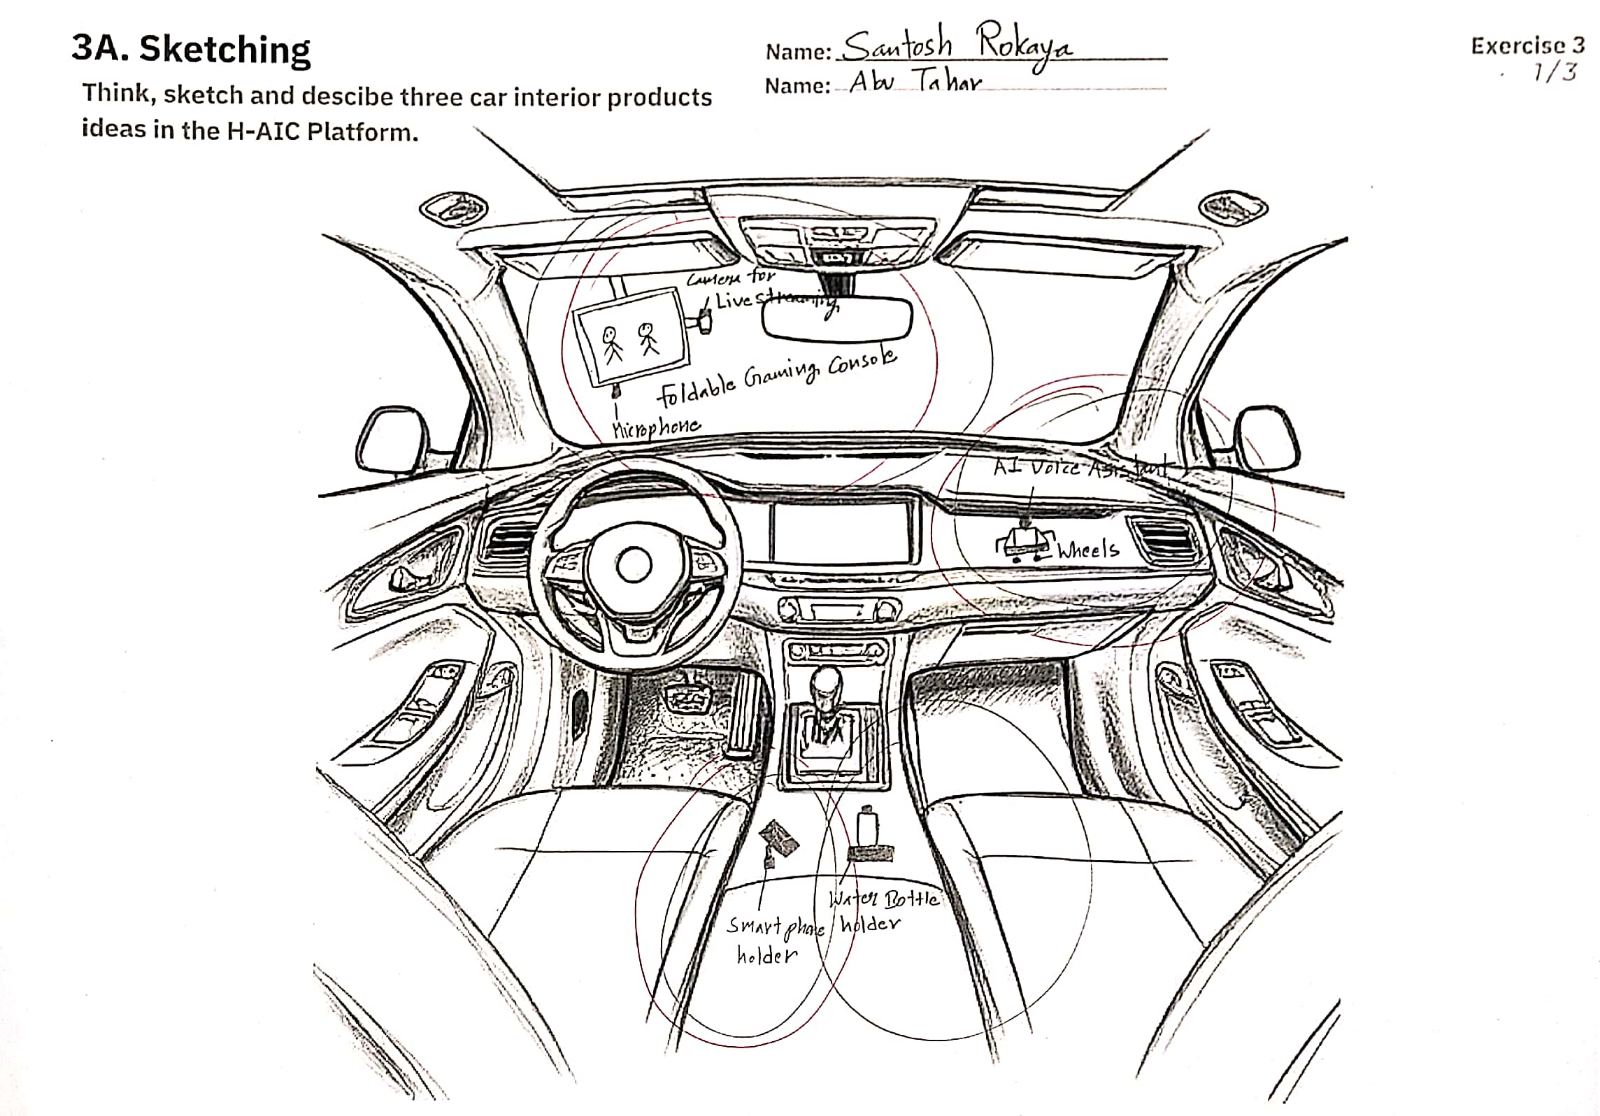 3A. Sketching
Think, sketch and descibe three car interior products
ideas in the H-AIC Platform.
Name: Santosh Rokaya
Name: Abu Tahar
Exercise 3
1/3
Camera for
Live streaming
Foldable Gaming Console
Microphone
AI Voice Asistant
Wheels
Smart phone
holder
Water Bottle
holder